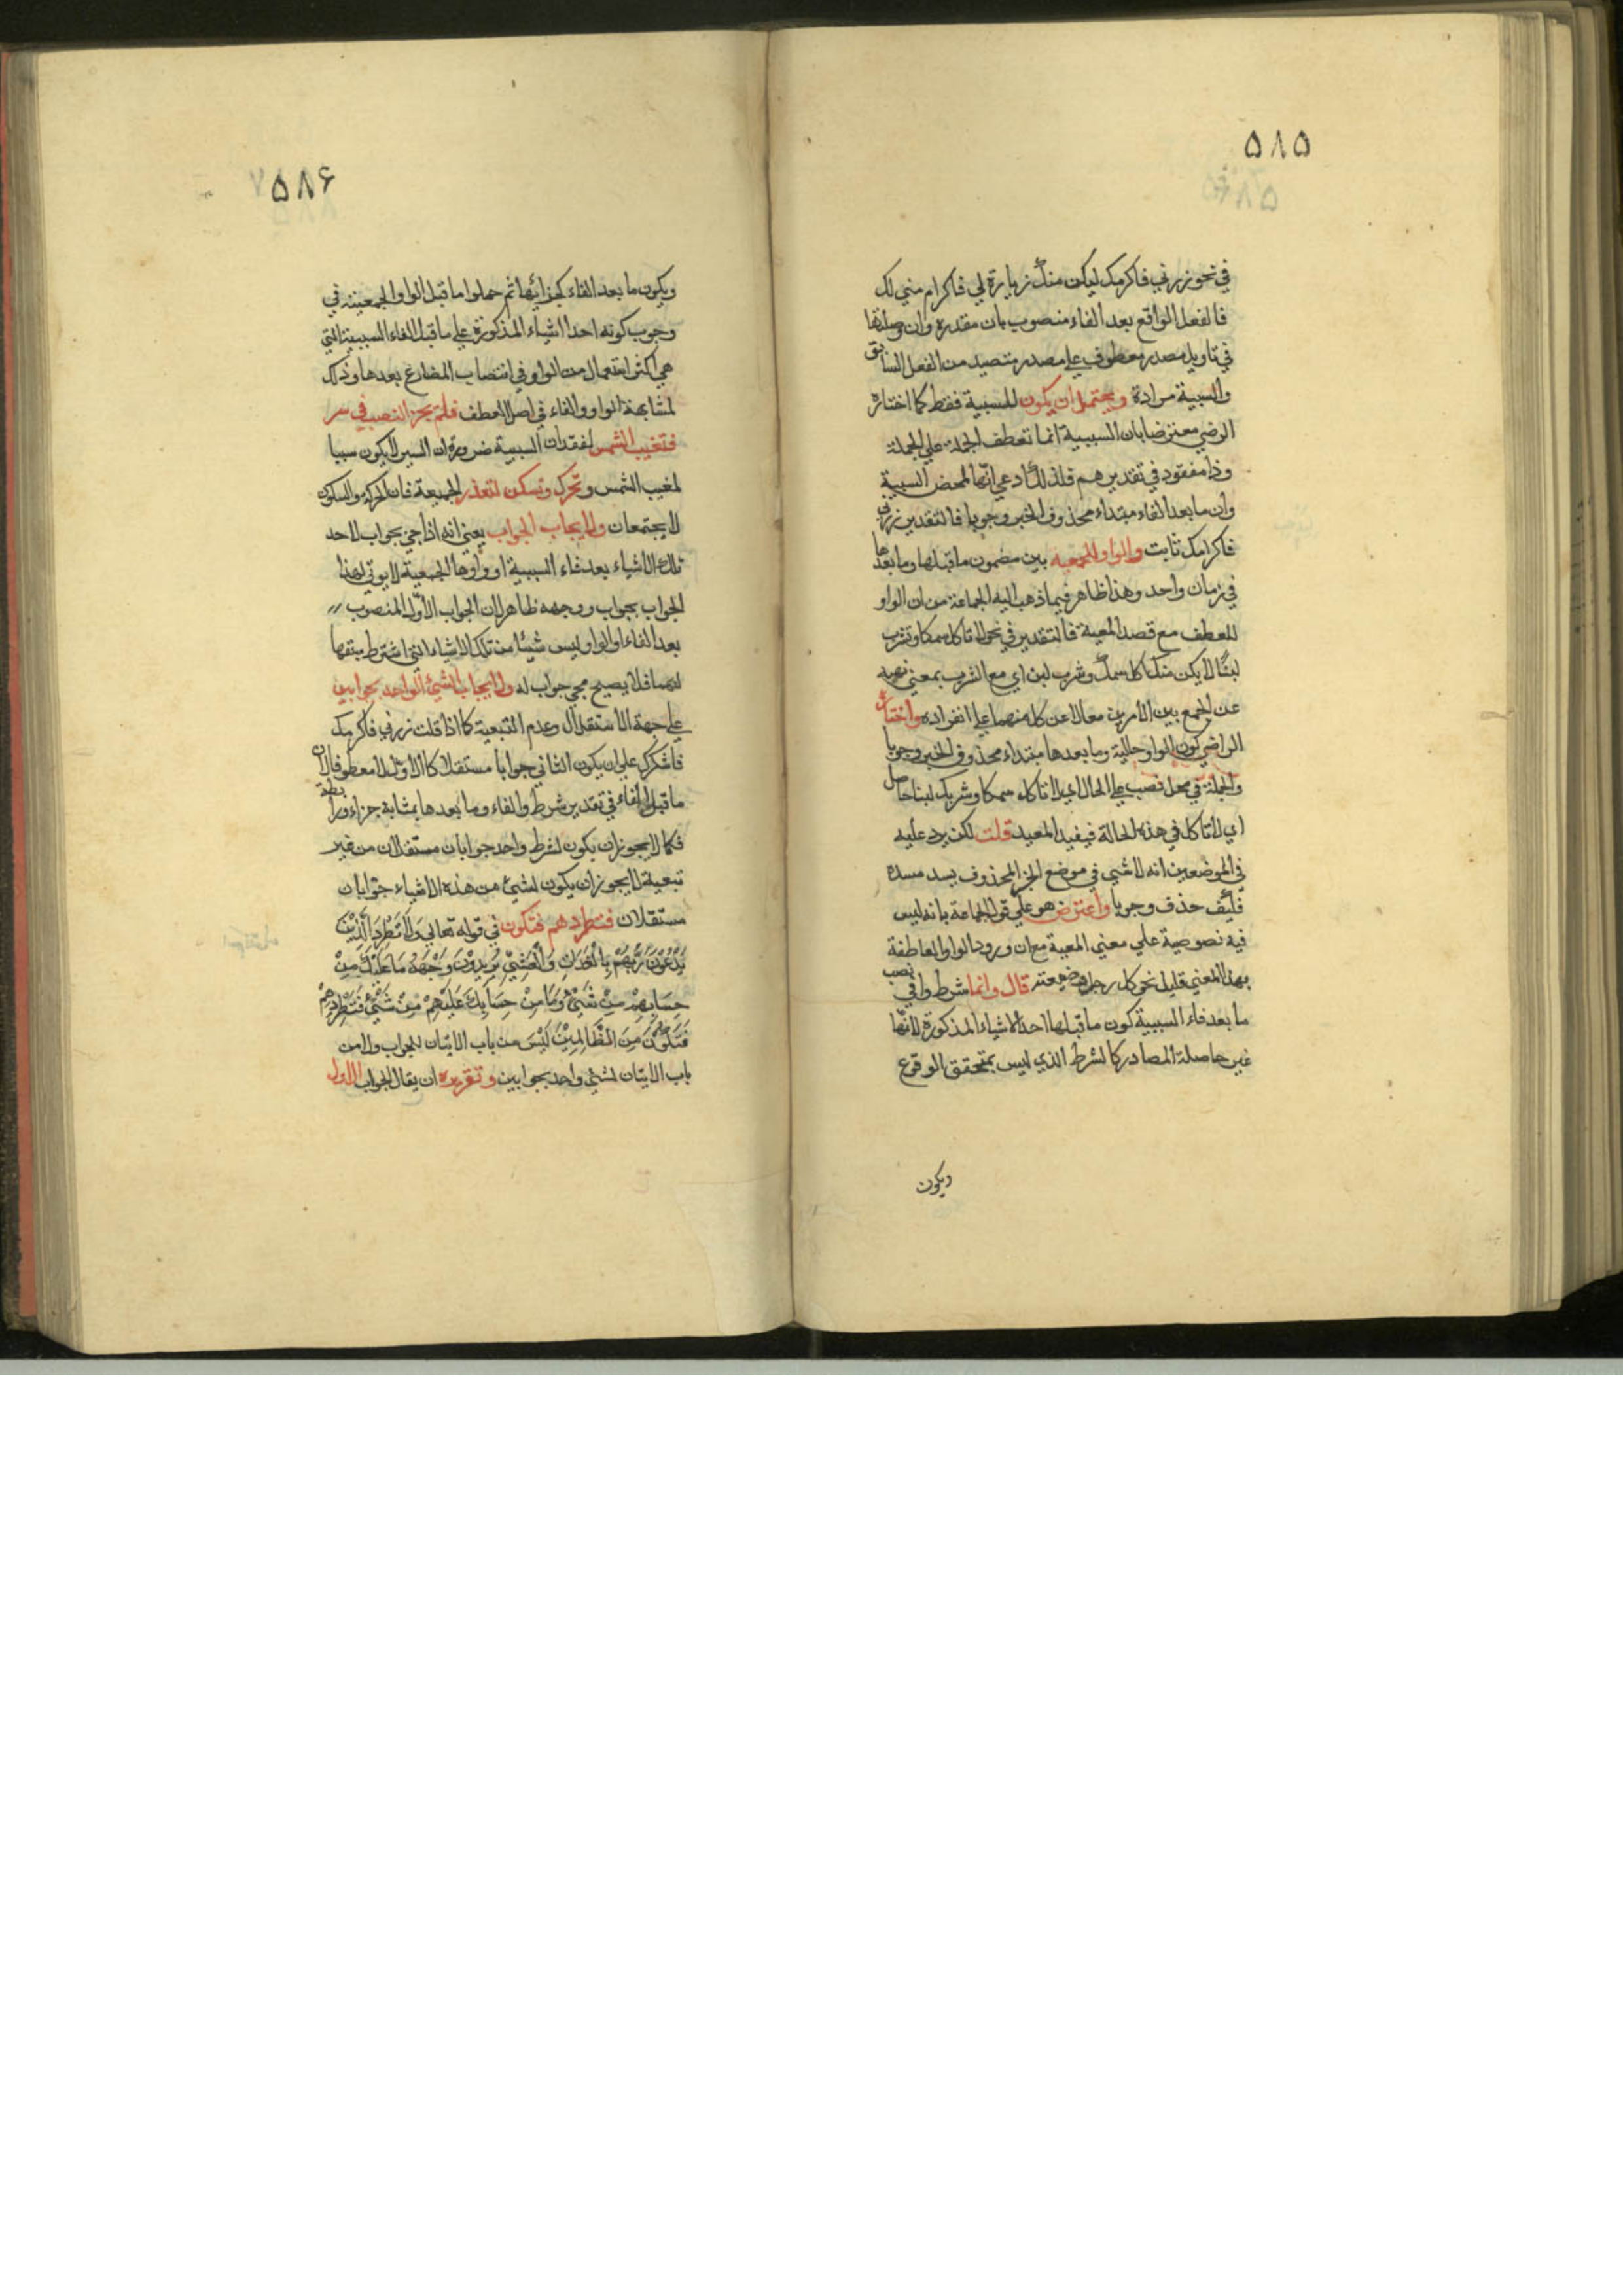 ٥٨٥
في نحو زرني فاكرمك ليكن منك زيارة لي فاكرام مني لك
فالفعل الواقع بعد الفاء منصوب بان مقدرة وان وصلتها
في تاويل مصدر معطوف علي مصدر متصيد من الفعل السابق
والسببية مرادة ويحتمل ان يكون للسببية فقط كما اختاره
الرضي معترضا بان السببية انما تعطف الجملة علي الجملة
وذا مفقود في تقديرهم فلذلك ادعي انها لمحض السببية
وان ما بعد الفاء مبتداء محذوف الخبر وجوبا فالتقدير زرني
فاكرامك ثابت والواو للجمعيه بين مضمون ما قبلها وما بعدها
في زمان واحد وهذا ظاهر فيما ذهب اليه الجماعة من ان الواو
للعطف مع قصد المعية فالتقدير في نحو لا تاكل سمكا وتشرب
لبنًا لا يكن منك اكل سمك وشرب لبن اي مع الشرب بمعني نهيه
عن الجمع بين الأمرين معا لا عن كل منهما علي انفراده واختار
الراضي كون الواو حالية وما بعدها مبتداء محذوف الخبر وجوبا
والجملة في محل نصب علي الحال اي لا تاكل سمكا وشربك لبنا حاصل
اي لا تاكل في هذه الحالة فيفيد المعيد قلت لكن يرد عليه
في الموضعين انه لا شيي في موضع الخبر المحذوف يسد مسده
فكيف حذف وجوبا واعترض هو علي قول الجماعة بانه ليس
فيه نصوصية علي معني المعية مع ان ورود الواو العاطفة
بهذا المعني قليل نحو كل رجل وضيعته قال وانما شرطوا في نصب
ما بعد فاء السببية كون ما قبلها احد الاشياء المذكورة لانها
غير حاصلة المصادر كالشرط الذي ليس بمتحقق الوقوع
ويكون
٥٨۶
ويكون ما بعد الفاء كجزائها ثم حملوا ما قبل الواو الجمعية في
وجوب كونه احد اشياء المذكورة علي ما قبل الفاء السببية التي
هي اكثر استعمالا من الواو في انتصاب المضارع بعدها وذلك
لمشابهة الواو والفاء في اصل العطف فلم يجز النصب في سر
فتغيب الشمس لفقدان السببية ضرورة ان السير لا يكون سببا
لمغيب الشمس وتحرك وتسكن لتعذر الجمعية فان الحركة والسكون
لا يجتمعان ولا يجاب الجواب يعني انه اذا جيئ بجواب لاحد
تلك الاشياء بعد فاء السببية او واوها الجمعية لا يوتي لهذا
الجواب بجواب ووجهه ظاهر لان الجواب الأول المنصوب
بعد الفاء او الواو ليس شيئا من تلك الاشياء التي اشترط سبقها
لهما فلا يصح مجي جواب له ولا يجاب الشيئ الواحد بجوابين
علي جهة الأستقلال وعدم التبعية كما اذا قلت زرني فاكرمك
فاشكرك علي ان يكون الثاني جوابا مستقلا كالاول لا معطوفا لأن
ما قبل الفاء في تقدير شرط والفاء وما بعدها بمثابة جزاء ورابطة
فكما لا يجوز ان يكون لشرط واحد جوابان مستقلان من غير
تبعية لا يجوز ان يكون لشيئ من هذه الاشياء جوابان
مستقلان فتطردهم فتكون في قوله تعالي وَلَا تَطْرُدِ الَّذِيْنَ
يَدْعُوْنَ رَبَّهُمْ بِالْغَدٰاةِ وَالْعَشِيِّ يُرِيدُوْنَ وَجْهَهُ مَا عَلَيْكَ مِنْ
حِسَابِهِمْ مِنْ شَيْئٍ وَمَا مِنْ حِسَابِكَ عَلَيْهِمْ مِنْ شَيْئٍ فَتَطْرُدَهُمْ
فَتَكُوْنَ مِنَ الظَّالِمِيْنَ لَيْسَ من باب الاتيان لجواب ولا من
باب الاتيان لشيئ واحد بجوابين وتقريره ان يقال الجواب الاول